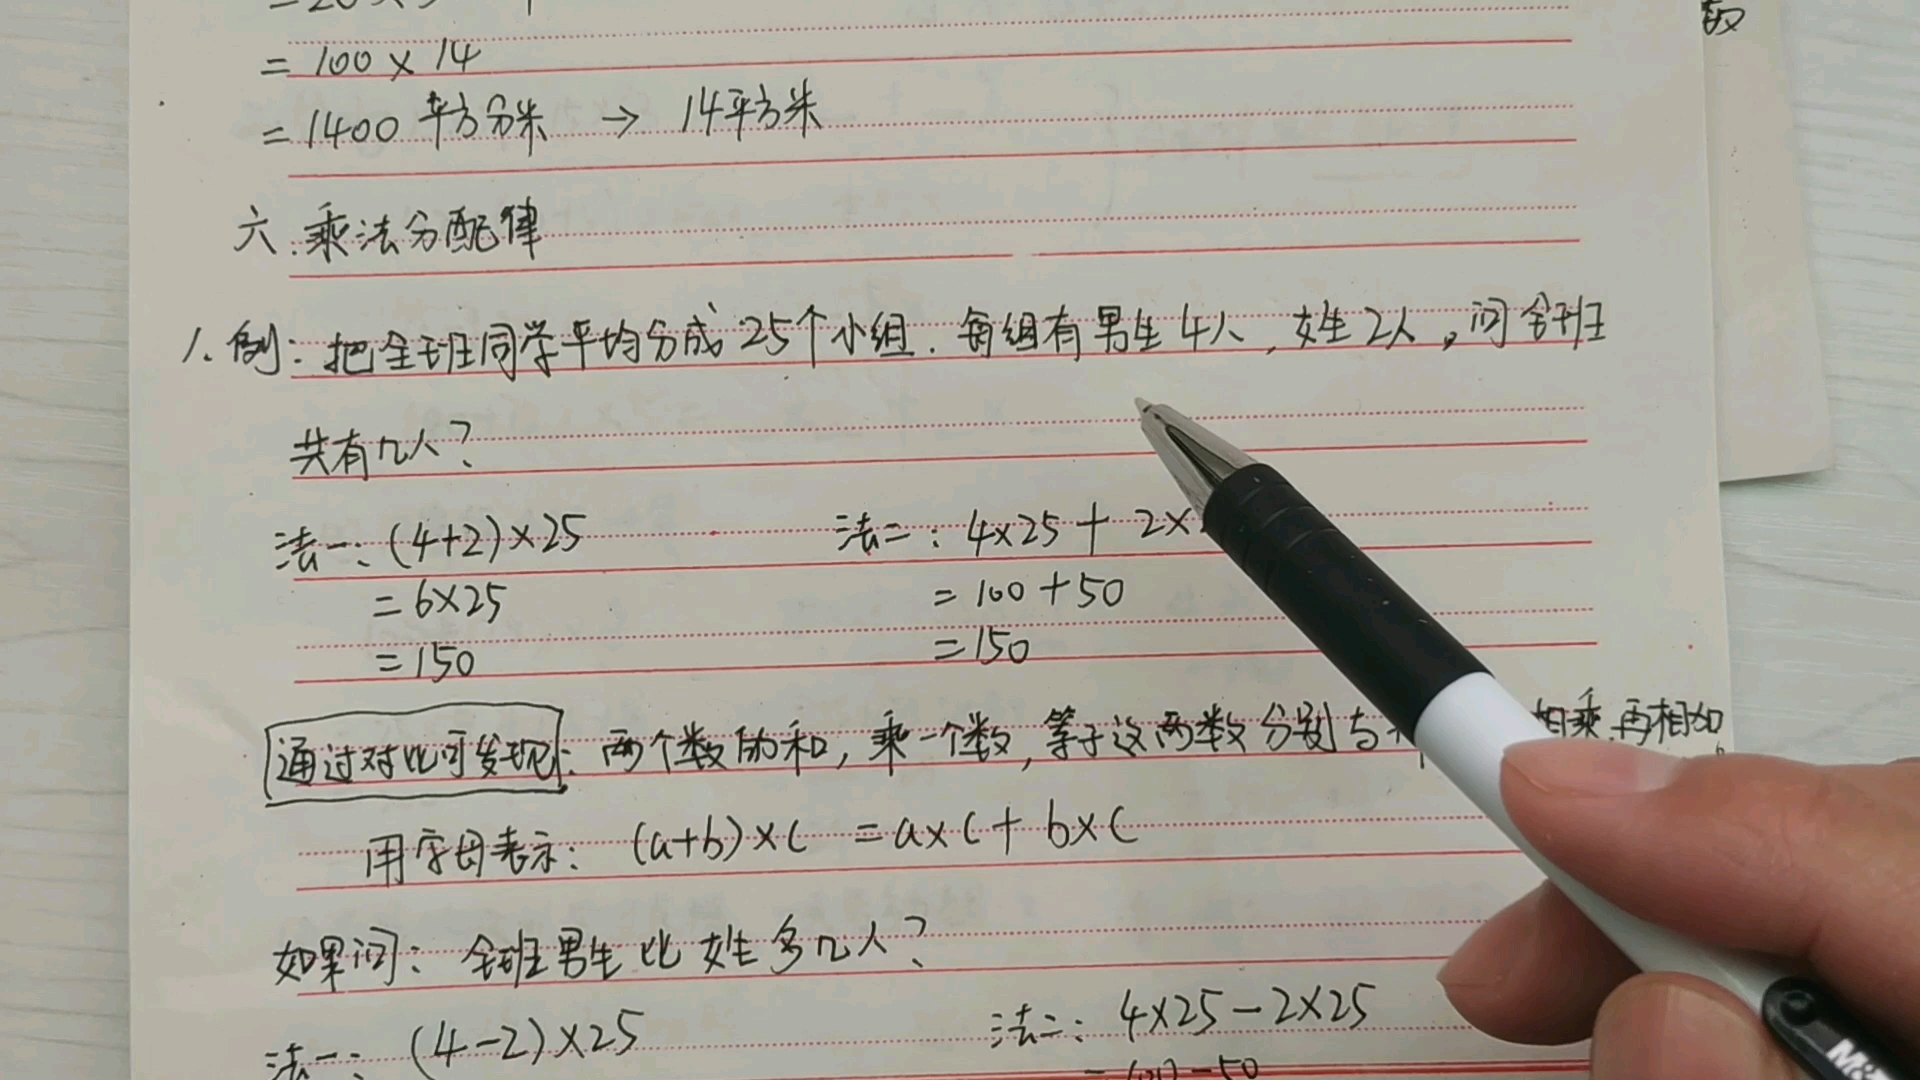 = 100 × 14
= 1400 平方分米 → 14平方米
六.乘法分配律
1.例:把全班同学平均分成25个小组.每组有男生4人,女生2人,问全班
共有几人?
法一:(4+2)×25 法二:4×25+2×
=6×25 =100+50
=150 =150
通过对比可发现:两个数的和,乘一个数,等于这两数分别与 相乘.再相加
用字母表示:(a+b)×c =a×c+b×c
如果问:全班男生比女生多几人?
法一:(4-2)×25 法二:4×25-2×25
M&